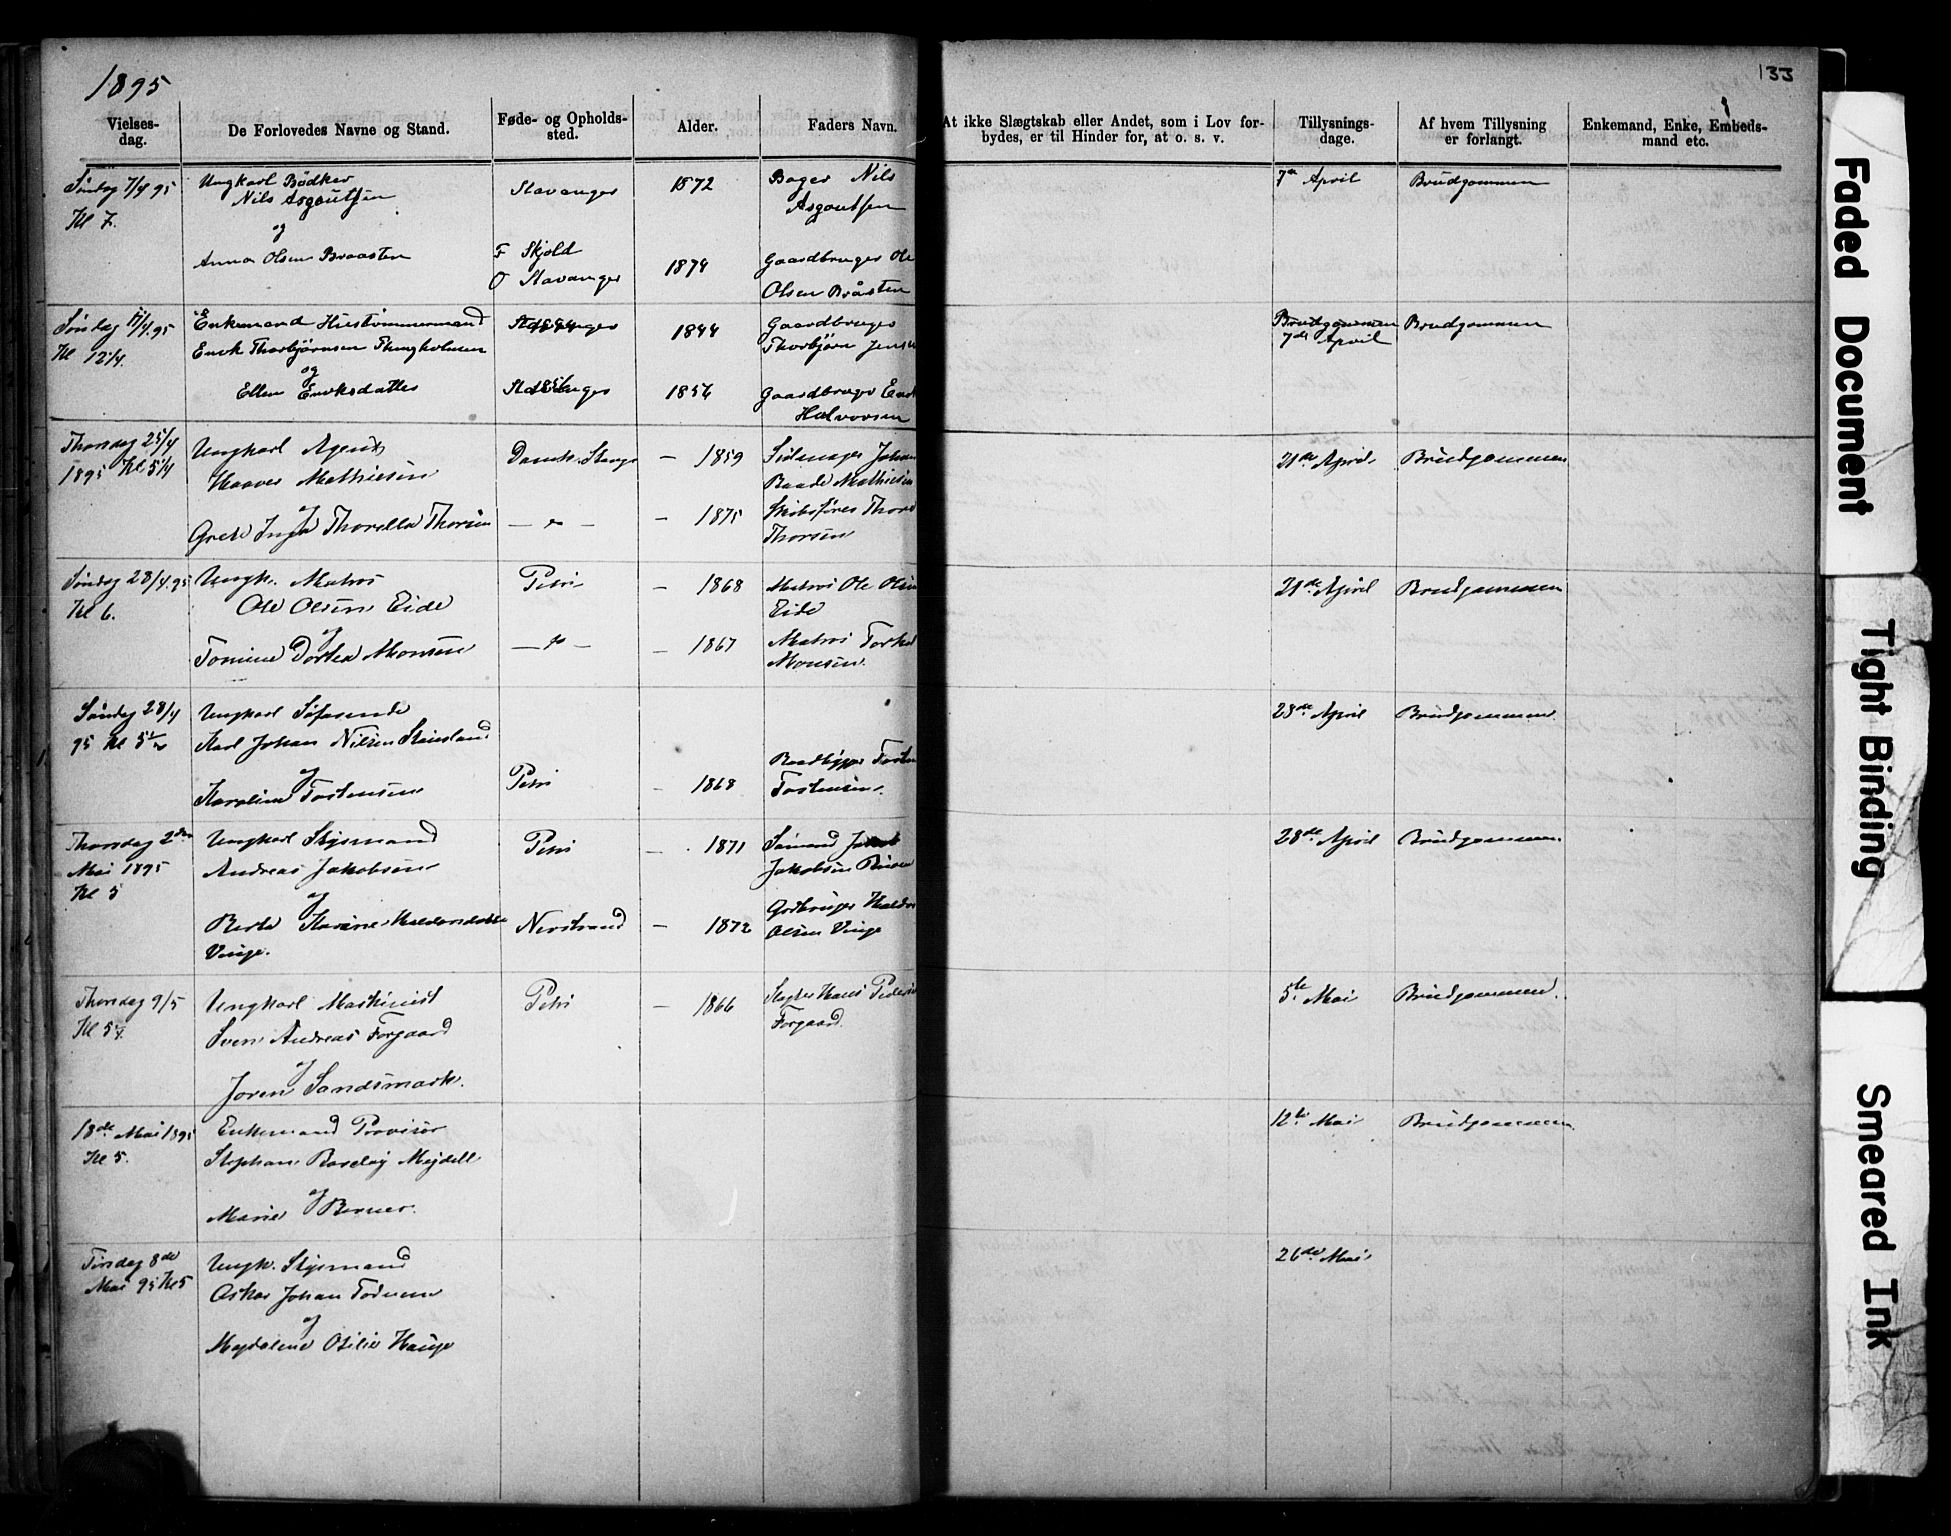 1895
133
Vielses-
dag.
De Forlovedes Navne og Stand.
Føde- og Opholds-
sted.
Alder.
Faders Navn.
At ikke Slægtskab eller Andet, som i Lov for-
bydes, er til Hinder for, at o. s. v.
Tillysnings-
dage.
Af hvem Tillysning
er forlangt.
Enkemand, Enke, Embeds-
mand etc.
Søndag 7/4 95
Kl 7.
Ungkarl Bødker
Nils Asgautsen
og
Anna Olsen Braasten
Stavanger
F Skjold
O Stavanger
1872
1874
Bager Nils
Asgautsen
Gaardbruger Ole
Olsen Bråsten
7de April
Brudgommen
Søndag /4.95
Kl 12/4.
Enkemand Hustømmermand
Enok Thorbjørnsen
og
Ellen Enoksdatter
Stavanger
Stavanger
1844
1856
Gaardbruger
Thorbjørn Jensen
Gaardbruger
Halvorsen
Brudgommen
7de April
Brudgommen
Thorsdag 25/4
1895 Kl 5/4
Ungkarl Agent
Mathiesen
og
Grete Inga Thorella Thorsen
— " —
— 1859
— 1875
Mathiesen
Skibsfører Thore
Thorsen
21de April
Brudgommen
Søndag 28/4.95
Kl 6.
Ungk. Matros
Ole Olsen Eide
og
Tomine Dortea Monsen
Petri
— " —
— 1868
— 1867
Matros Ole Olsen
Eide
Matros Torkel
Monsen.
21de April
Brudgommen
Søndag 28/4
95 Kl 5½
Ungkarl Søfarende
Karl Johan Nilsen Steinsland
og
Karoline Tostensen
Petri
— 1868
Tostensen.
28de April
Brudgommen.
Thorsdag 2den
Mai 1895
Kl 5
Ungkarl Styrmand
Andreas Jakobsen
og
Berte Karine Haldorsdatter
Vinge.
Petri
Nerstrand
— 1871
— 1872
Sømand Jakob
Jakobsen
Grdbruger Haldor
Olsen Vinge
28de April
Brudgommen.
Thorsdag 9/5
Kl 5½.
Ungkarl Maskinist
Sven Andreas Forgaard
og
Joren Sandsmark.
Petri
— 1866
Hans Pedersen
Forgaard.
5te Mai
Brudgommen.
18de Mai 1895
Kl 5.
Enkemand Provisor
Stephan Barclay Mejdell
og
Marie Berner.
12te Mai
Brudgommen.
Tirsdag 8de
Mai 95 Kl 5
Ungk. Styrmand
Oskar Johan
og
Magdalene Otilie Hauge
26de Mai
Faded Document
Tight Binding
Smeared Ink